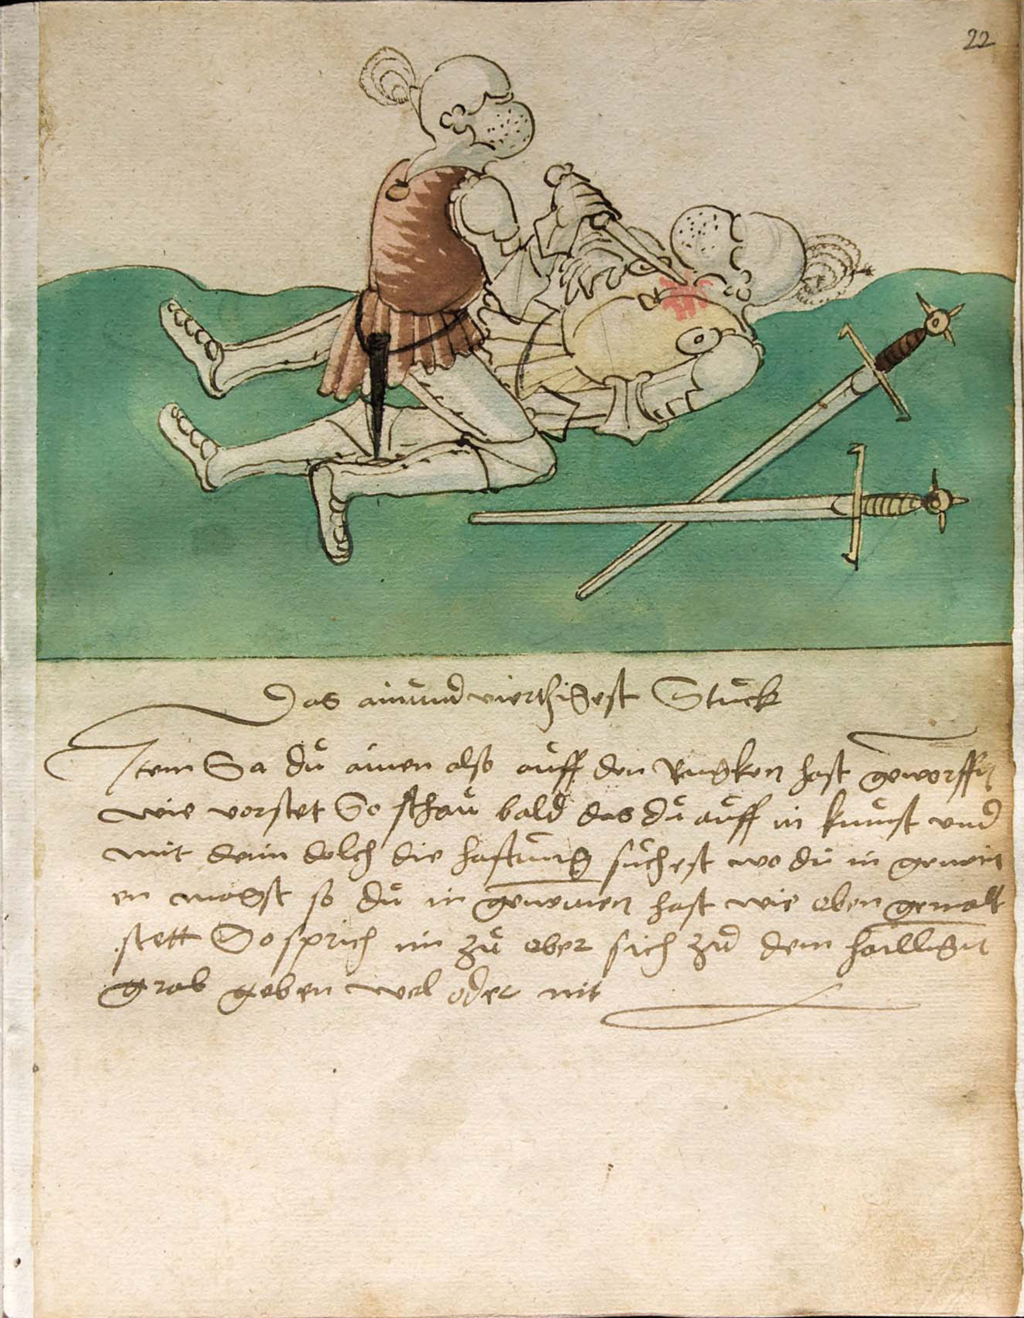 22
Das ainund vierthigest Stuck
Item So du ainen also auff den Rugken hast geworffen
wie vorstet So schau bald das du auff in kumst und
mit dem dolch die hafftung suchest wo du in gewin
en magst so du in genomen hast wie oben gemalt
stett So sprich im zu aber sich zu dem hailligen
grab geben wel oder nit